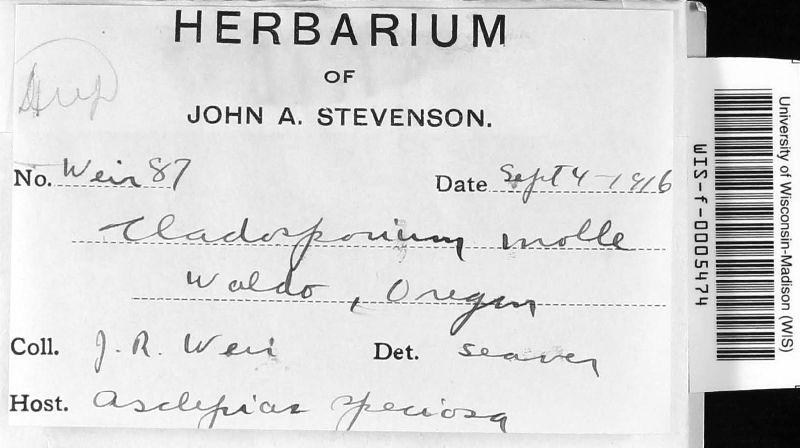 HERBARIUM
OF
JOHN A. STEVENSON.
Dup
No. Weir 87
Date Sept 4-1916
Cladosporium molle
Waldo, Oregon
Coll. J. R. Weir
Det. Seaver
Host. Asclepias speciosa
WIS-f-0005474
University of Wisconsin-Madison (WIS)